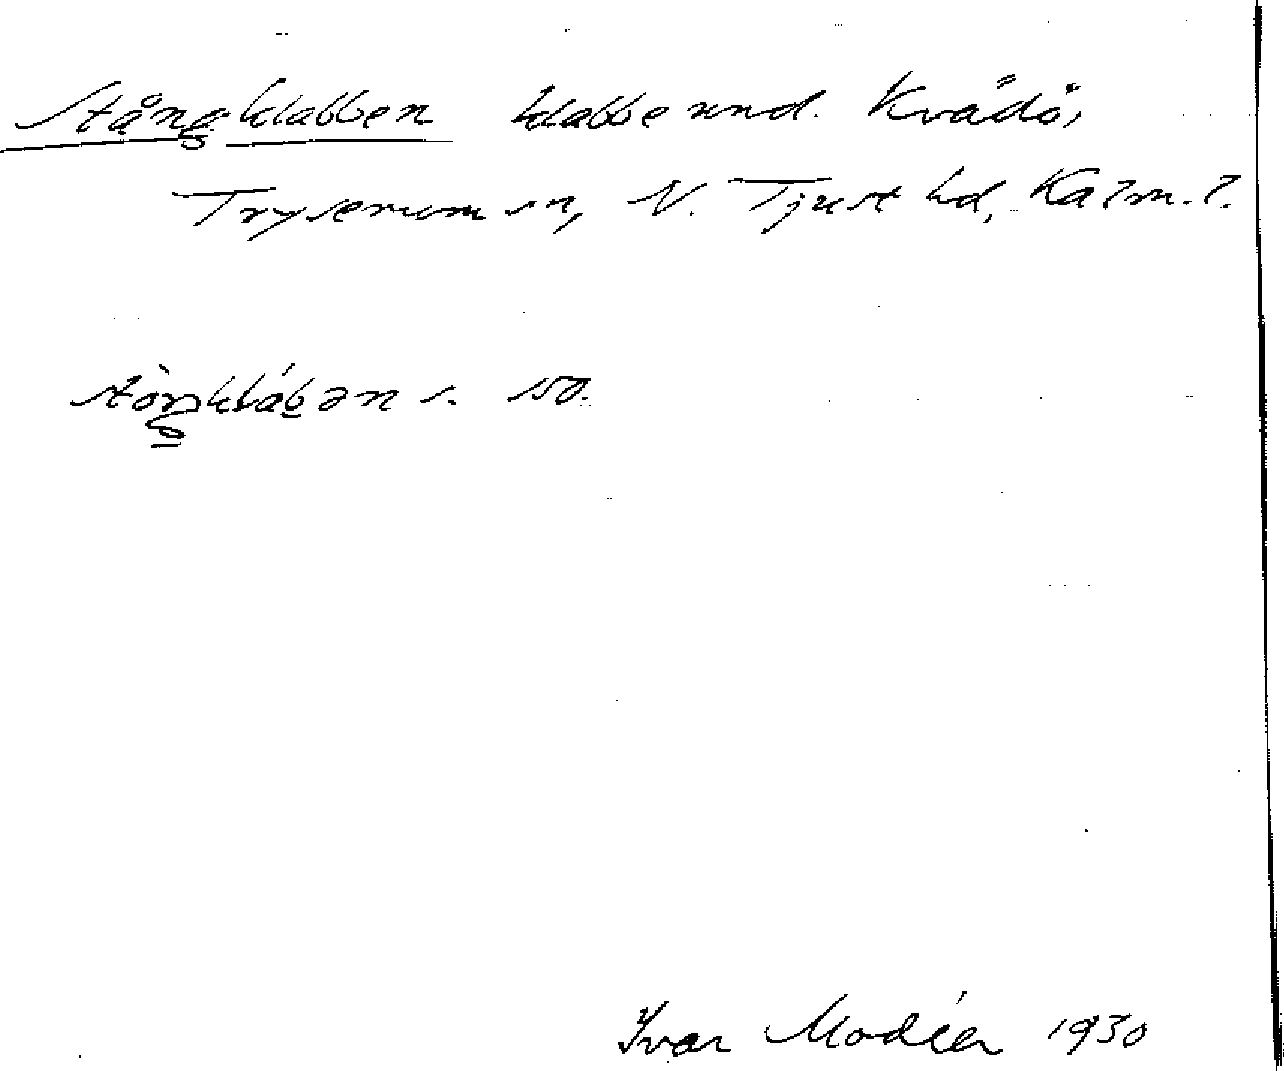 Stångklabben klabbe und. Kvädö,
Tryserum sn, N. Tjust hd, Kalm. l.
s. 150.
Ivar Modéer 1930